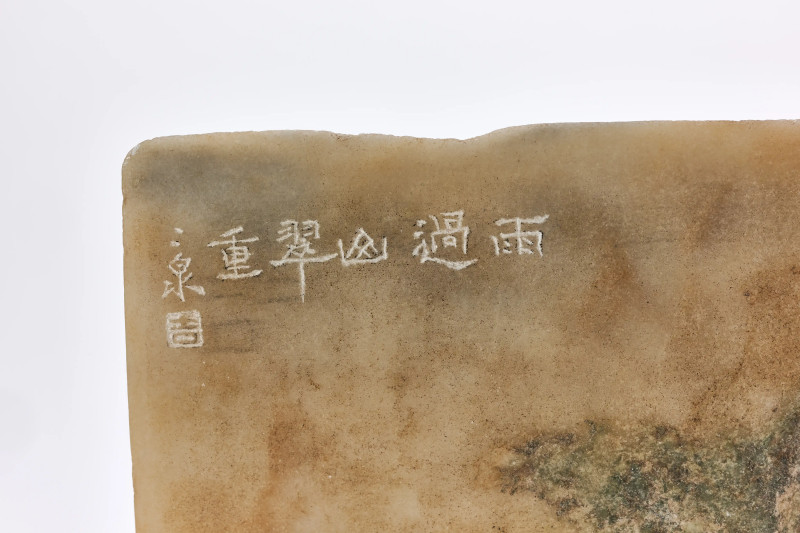 雨過山翠重
二泉